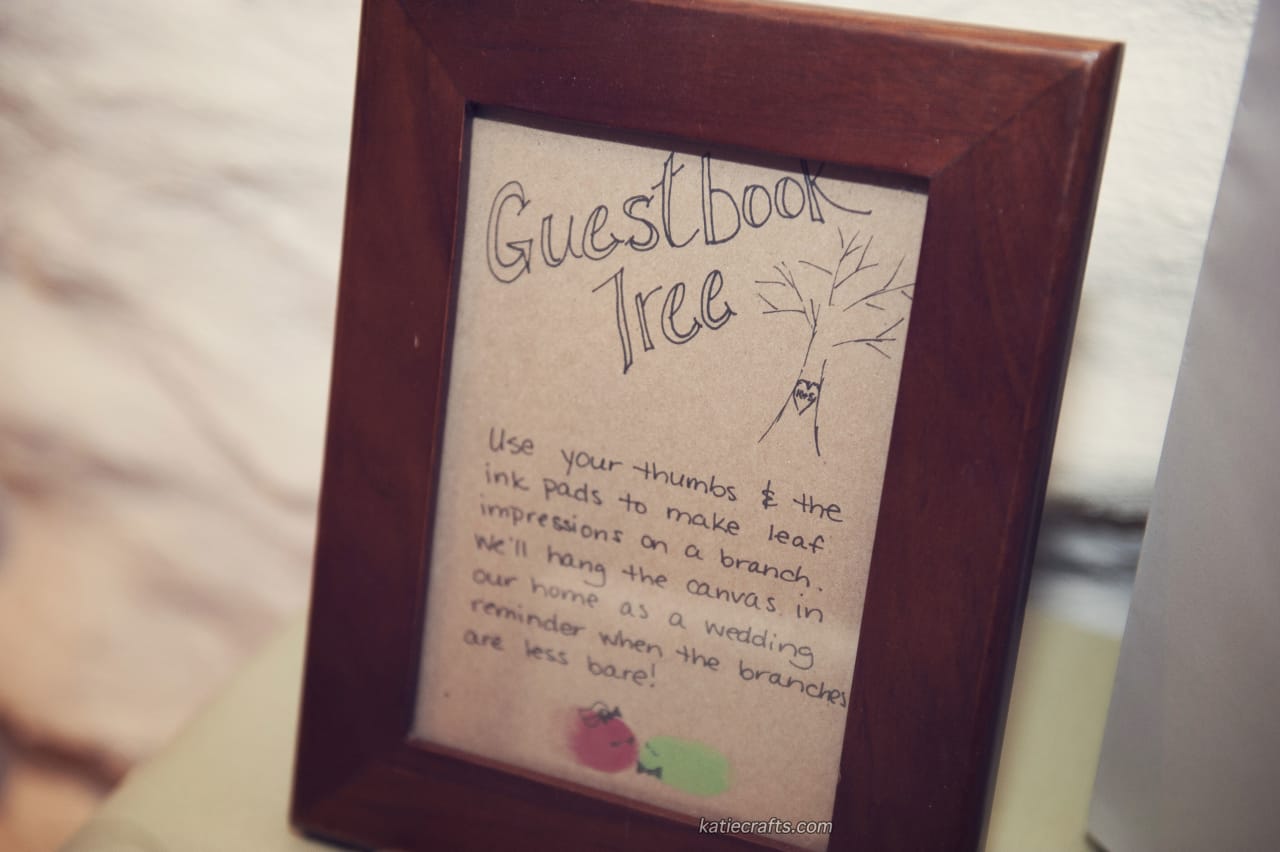 Guestbook
Tree
K+S
Use your thumbs & the
ink pads to make leaf
impressions on a branch.
We'll hang the canvas in
our home as a wedding
reminder when the branches
are less bare!
katiecrafts.com